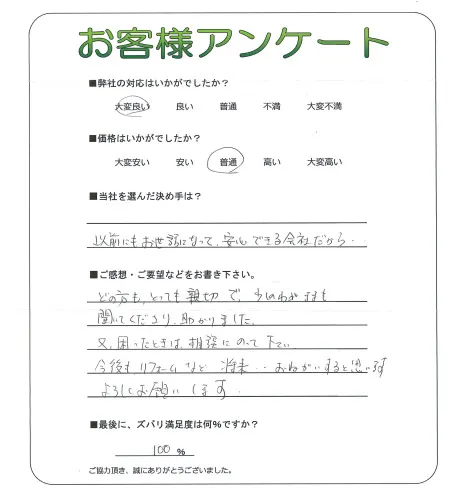 お客様アンケート
■弊社の対応はいかがでしたか?
大変良い 良い 普通 不満 大変不満
■価格はいかがでしたか?
大変安い 安い 普通 高い 大変高い
■当社を選んだ決め手は?
以前にもお世話になって、安心できる会社だから.
■ご感想・ご要望などをお書き下さい。
どの方も、とても親切で、うちのわがままも
聞いてくださり、助かりました.
又、困ったときは、相談にのって下さい.
今後も リフォームなど 将来… おねがいすると思います
よろしくお願いします.
■最後に、ズバリ満足度は何%ですか?
100 %
ご協力頂き、誠にありがとうございました。